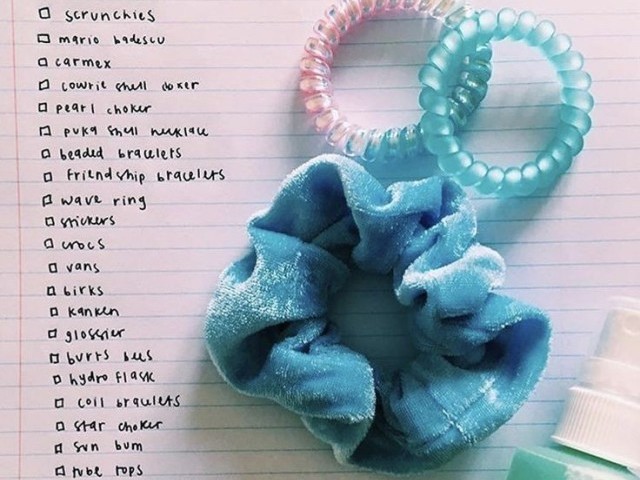 scrunchies
mario badescu
carmex
cowrie shell coker
pearl choker
puka shell necklace
beaded bracelets
friendship bracelets
wave ring
stickers
crocs
vans
birks
kanken
glossier
burts bees
hydro flask
coil bracelets
star choker
sun bum
tube tops